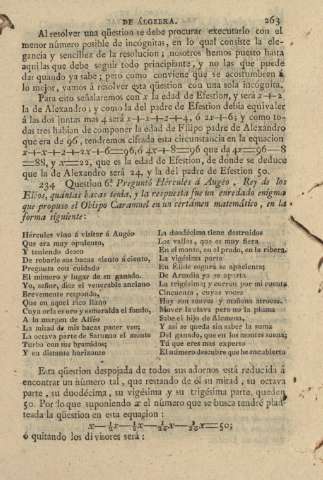 DE ÁLGEBRA. 263
Al resolver una qüestion se debe procurar executarlo con el
menor número posible de incógnitas, en lo qual consiste la ele-
gancia y sencillez de la resolucion; nosotros hemos puesto hasta
aquí las que debe seguir todo principiante, y no las que puede
dar quando ya sabe; pero como conviene que se acostumbren á
lo mejor, vamos á resolver esta qüestion con una sola incógnita.
Para esto señalaremos con x la edad de Efestion, y será x+2
la de Alexandro; y como la del padre de Efestion debia equivaler
á las dos juntas mas 4 será x+x+2+4, ó 2x+6; y como to-
das tres habian de componer la edad de Filipo padre de Alexandro
que era de 96, tendremos cifrada esta circunstancia en la equacion
x+x+2+2x+6=96, ó 4x+8=96 que da 4x=96-8
=88, y x=22, que es la edad de Efestion, de donde se deduce
que la de Alexandro será 24, y la del padre de Efestion 50.
234 Question 6.ª Preguntó Hércules á Augéo, Rey de los
Elios, quántas bacas tenia, y la respuesta fue un enredado enigma
que propuso el Obispo Caramuel en un certámen matemático, en la
forma siguiente:
Hércules vino á visitar á Augéo
Que era muy opulento,
Y teniendo deseo
De robarle sus bacas ciento á ciento,
Pregunta con cuidado
El número y lugar de su ganado.
Yo, señor, dice el venerable anciano
Brevemente respondo,
Que en aquel rico llano
Cuya orla es oro y esmeralda el fundo,
A la márgen de Alféo
La mitad de mis bacas pacer veo;
La octava parte de Saturno el monte
Purbo con sus bramidos;
Y en distante horizonte
La duodécima tiene destruidos
Los valles, que es muy fiera
En el monte, en el prado, en la ribera.
La vigésima parte
En Elide segura se apacienta;
De Arcadia ya se aparta
La trigésima y corren por mi cuenta
Cincuenta, cuyas voces
Hoy son suaves y mañana atroces.
Mover la clava pero no la pluma
Sabe el hijo de Alcmena,
Y así se queda sin saber la suma
Del ganado, que en los montes suena;
Tú que eres mas experto
El número descubre que he encubierto
Esta qüestion despojada de todos sus adornos está reducida á
encontrar un número tal, que restando de él su mitad, su octava
parte, su duodécima, su vigésima y su trigésima parte, queden
50. Por lo que suponiendo x el número que se busca tendré plan-
teada la qüestion en esta equacion:
ó quitando los divisores será: